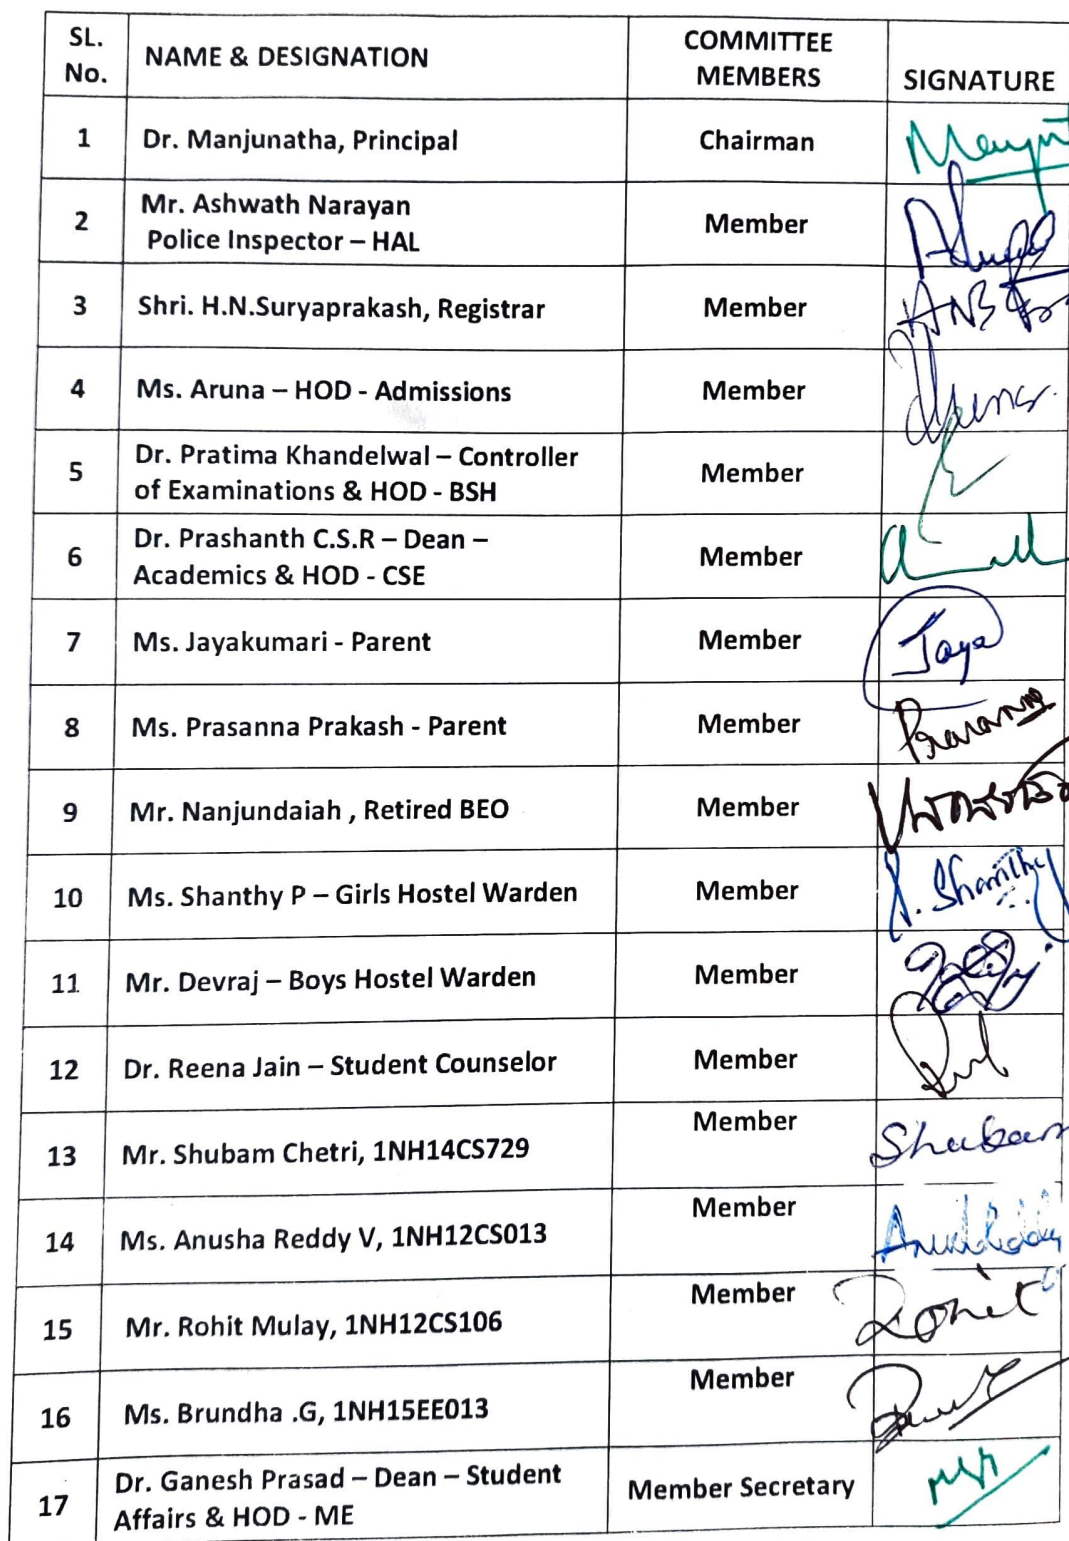 SL. No. NAME & DESIGNATION COMMITTEE MEMBERS SIGNATURE
1 Dr. Manjunatha, Principal Chairman
2 Mr. Ashwath Narayan Member
Police Inspector – HAL
3 Shri. H.N.Suryaprakash, Registrar Member
4 Ms. Aruna – HOD - Admissions Member
5 Dr. Pratima Khandelwal – Controller Member
of Examinations & HOD - BSH
6 Dr. Prashanth C.S.R – Dean – Member
Academics & HOD - CSE
7 Ms. Jayakumari - Parent Member Jaya
8 Ms. Prasanna Prakash - Parent Member Prasanna
9 Mr. Nanjundaiah , Retired BEO Member
10 Ms. Shanthy P – Girls Hostel Warden Member P. Shanthy
11 Mr. Devraj – Boys Hostel Warden Member
12 Dr. Reena Jain – Student Counselor Member
13 Mr. Shubam Chetri, 1NH14CS729 Member Shubam
14 Ms. Anusha Reddy V, 1NH12CS013 Member
15 Mr. Rohit Mulay, 1NH12CS106 Member Rohit
16 Ms. Brundha .G, 1NH15EE013 Member
17 Dr. Ganesh Prasad – Dean – Student Member Secretary
Affairs & HOD - ME